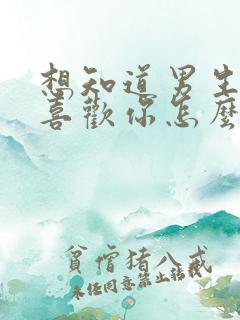 想知道男生
喜歡你怎麼
貧僧豬八戒
未经同意禁止转载